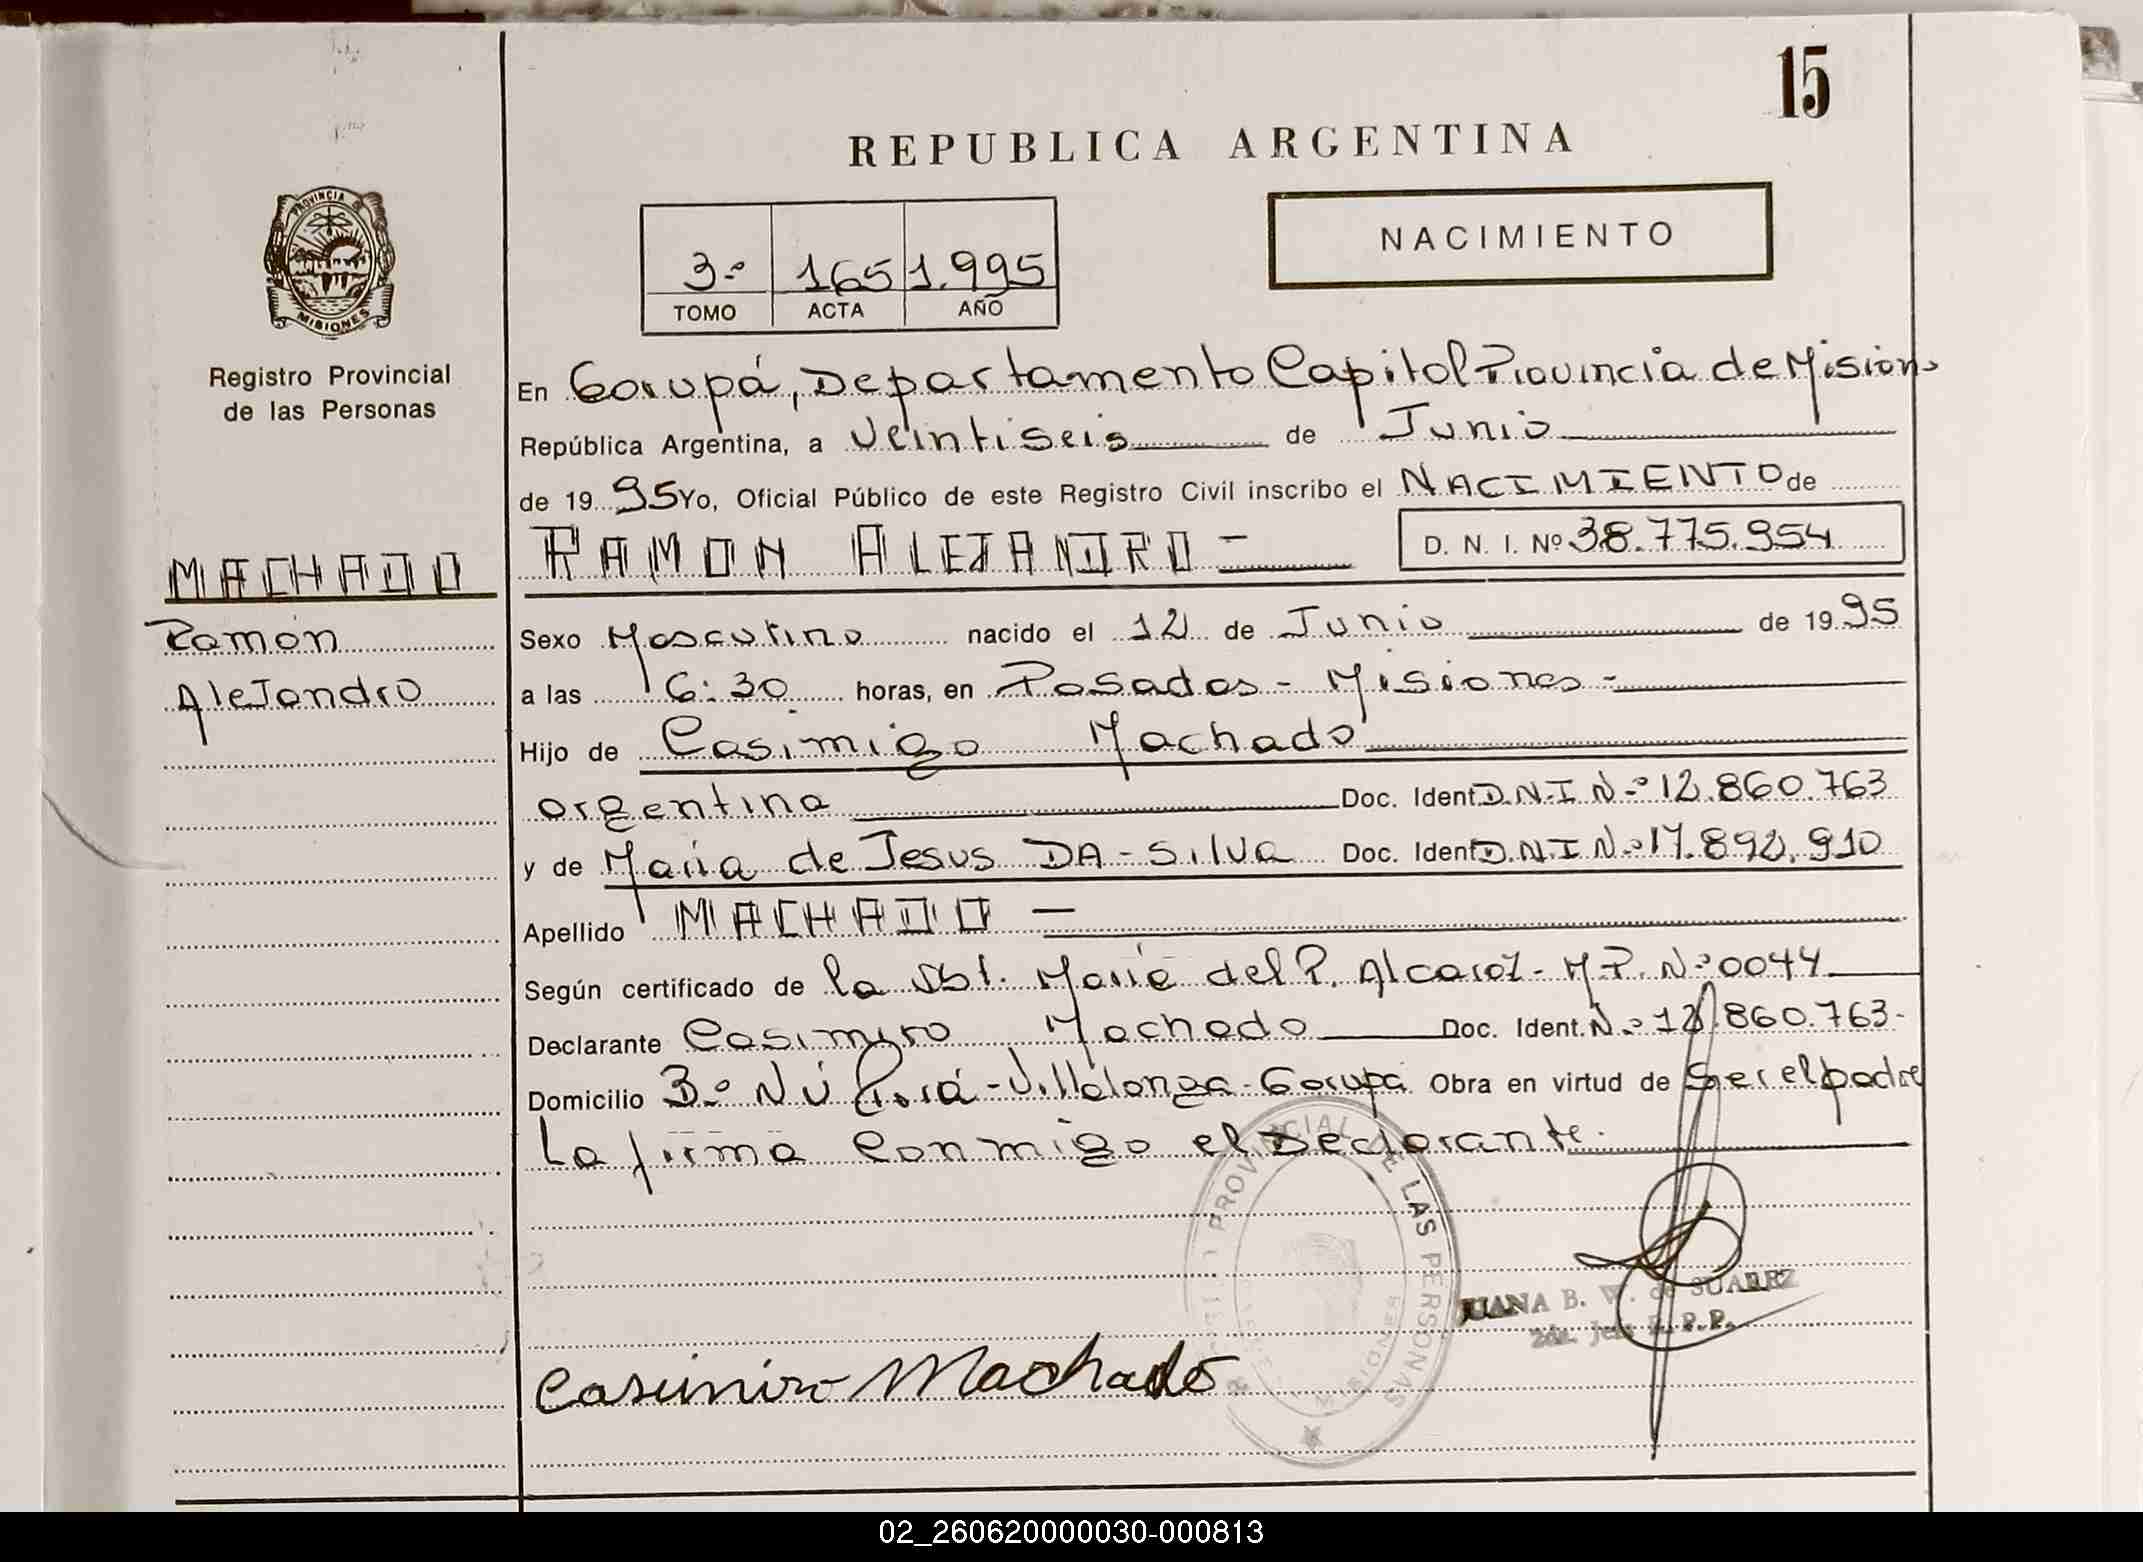 15
REPUBLICA ARGENTINA
PROVINCIA DE
MISIONES
Registro Provincial
de las Personas
NACIMIENTO
3.º 165 1.995
TOMO ACTA AÑO
En Garupá, Departamento Capital Provincia de Mision
República Argentina, a Veintiseis de Junio
de 19 95 Yo, Oficial Público de este Registro Civil inscribo el NACIMIENTO de
MACHADO
RAMON ALEJANDRO - D. N. I. Nº 38.775.954
Ramón
Sexo Masculino nacido el 12 de Junio de 19 95
Alejandro
a las 6:30 horas, en Posadas - Misiones -
Hijo de Casimigo Machado
argentina Doc. Ident. D.N.I N.º 12.860.763
y de Maria de Jesus DA-Silva Doc. Ident. D.N.I N.º 17.892.910
Apellido MACHADO -
Según certificado de la Obt. Maria del P. Alcaraz - M.P. N.º 0044
Declarante Casimiro Machado Doc. Ident. N.º 12.860.763-
Domicilio 3.º Ñú Porá - Villalonga - Garupá Obra en virtud de Ser el padre
La firma Conmigo el Declarante.
PROVINCIAL DE LAS PERSONAS
MISIONES
JUANA B. W. de SUAREZ
2da. Jefe R. P. P.
Casimiro Machado
02_260620000030-000813